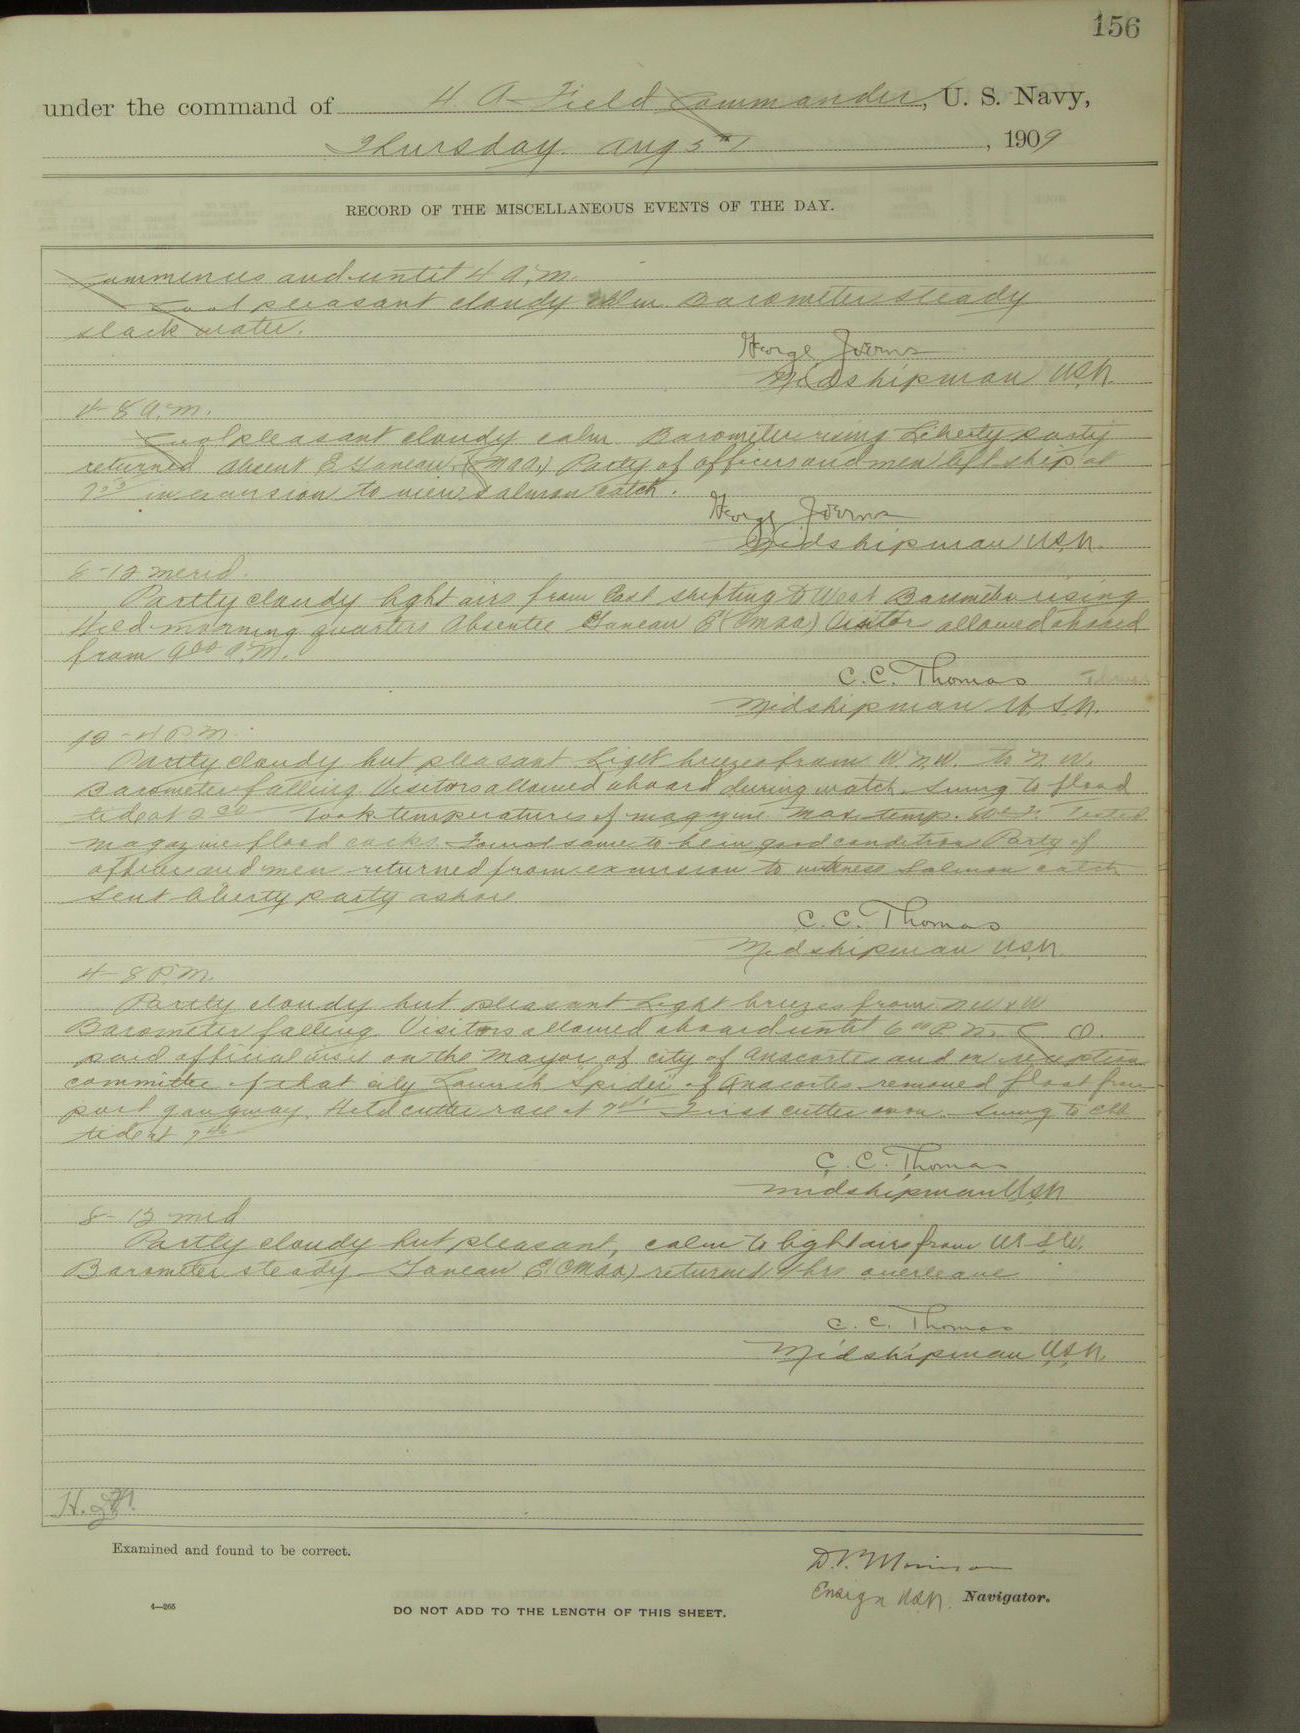 156
under the command of H. A. Field Commander, U. S. Navy,
Thursday Aug 5, 1909
RECORD OF THE MISCELLANEOUS EVENTS OF THE DAY.
Commences and until 4 A.M.
Cool pleasant cloudy calm Barometer steady
slack water.
George Joerns
Midshipman USN.
4-8 A.M.
Cool pleasant cloudy calm Barometer rising Liberty party
returned absent E (CMAA) Party of officers and men left ship at
in excursion to view salmon catch.
George Joerns
Midshipman USN.
8-12 merid.
Partly cloudy light airs from East shifting to West Barometer rising
Held morning quarters Absentee E (CMAA) Visitors allowed aboard
from 9⁰⁰ A.M.
C. C. Thomas
Midshipman U.S.N.
12-4 P.M.
Partly cloudy but pleasant Light breezes from W.N.W. to N.W.
Barometer falling Visitors allowed aboard during watch. Swung to flood
tide at Took temperatures of magazine Max. temp. Tested
magazine flood cocks Found same to be in good condition Party of
officers and men returned from excursion to witness Salmon catch
Sent liberty party ashore
C. C. Thomas
Midshipman USN.
4-8 P.M.
Partly cloudy but pleasant Light breezes from NW & W
Barometer falling Visitors allowed aboard until 6⁰⁰ P.M. C. O.
paid official visit on the Mayor of city of Anacortes and on reception
committee of that city Launch Spider of Anacortes removed float from
port gangway. Held cutter race at First cutter won. Swung to ebb
tide at
C. C. Thomas
Midshipman USN
8-12 mid
Partly cloudy but pleasant, calm to light airs from W.S.W.
Barometer steady E (CMAA) returned 4 hrs overleave
C. C. Thomas
Midshipman USN.
Examined and found to be correct.
D. P. Morrison
Ensign USN. Navigator.
4—265
DO NOT ADD TO THE LENGTH OF THIS SHEET.